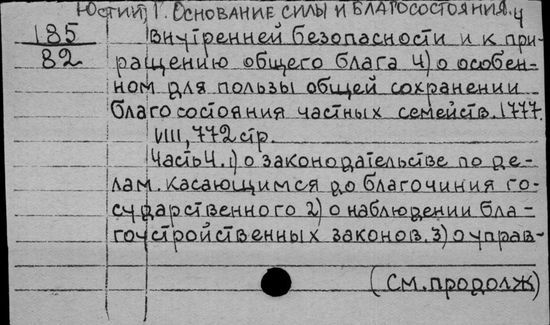 Юстий, Г. Основание силы и благосостояния. 4
185 внутренней безопасности и к при-
82 ращению общего блага 4) о особен-
ном для пользы общей сохранении
благосостояния частных семейств. 1777.
VIII, 772 стр.
Часть 4. 1) о законодательстве по де-
лам. касающимся до благочиния го-
сударственного 2) о наблюдении бла-
гоустройственных законов. 3) о управ-
(См. продолж)